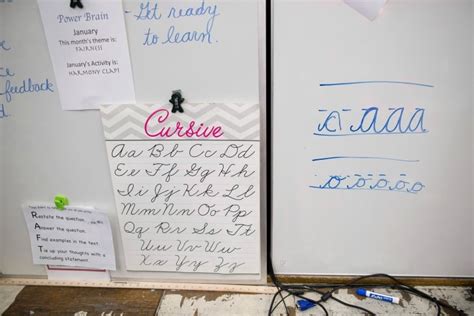 Power Brain
January
This month's theme is:
FAIRNESS
January's Activity is:
HARMONY CLAP!
Get ready
to learn.
feedback
Cursive
Aa Bb Cc Dd
Ee Ff Gg Hh
Ii Jj Kk Ll
Mm Nn Oo Pp
Qq Rr Ss Tt
Uu Vv Ww
Xx Yy Zz
RESTATE THE QUESTION...
ANSWER THE QUESTION.
FIND EXAMPLES IN THE TEXT
TIE UP YOUR THOUGHTS WITH A
CONCLUDING STATEMENT.
a a a a
o o o o o